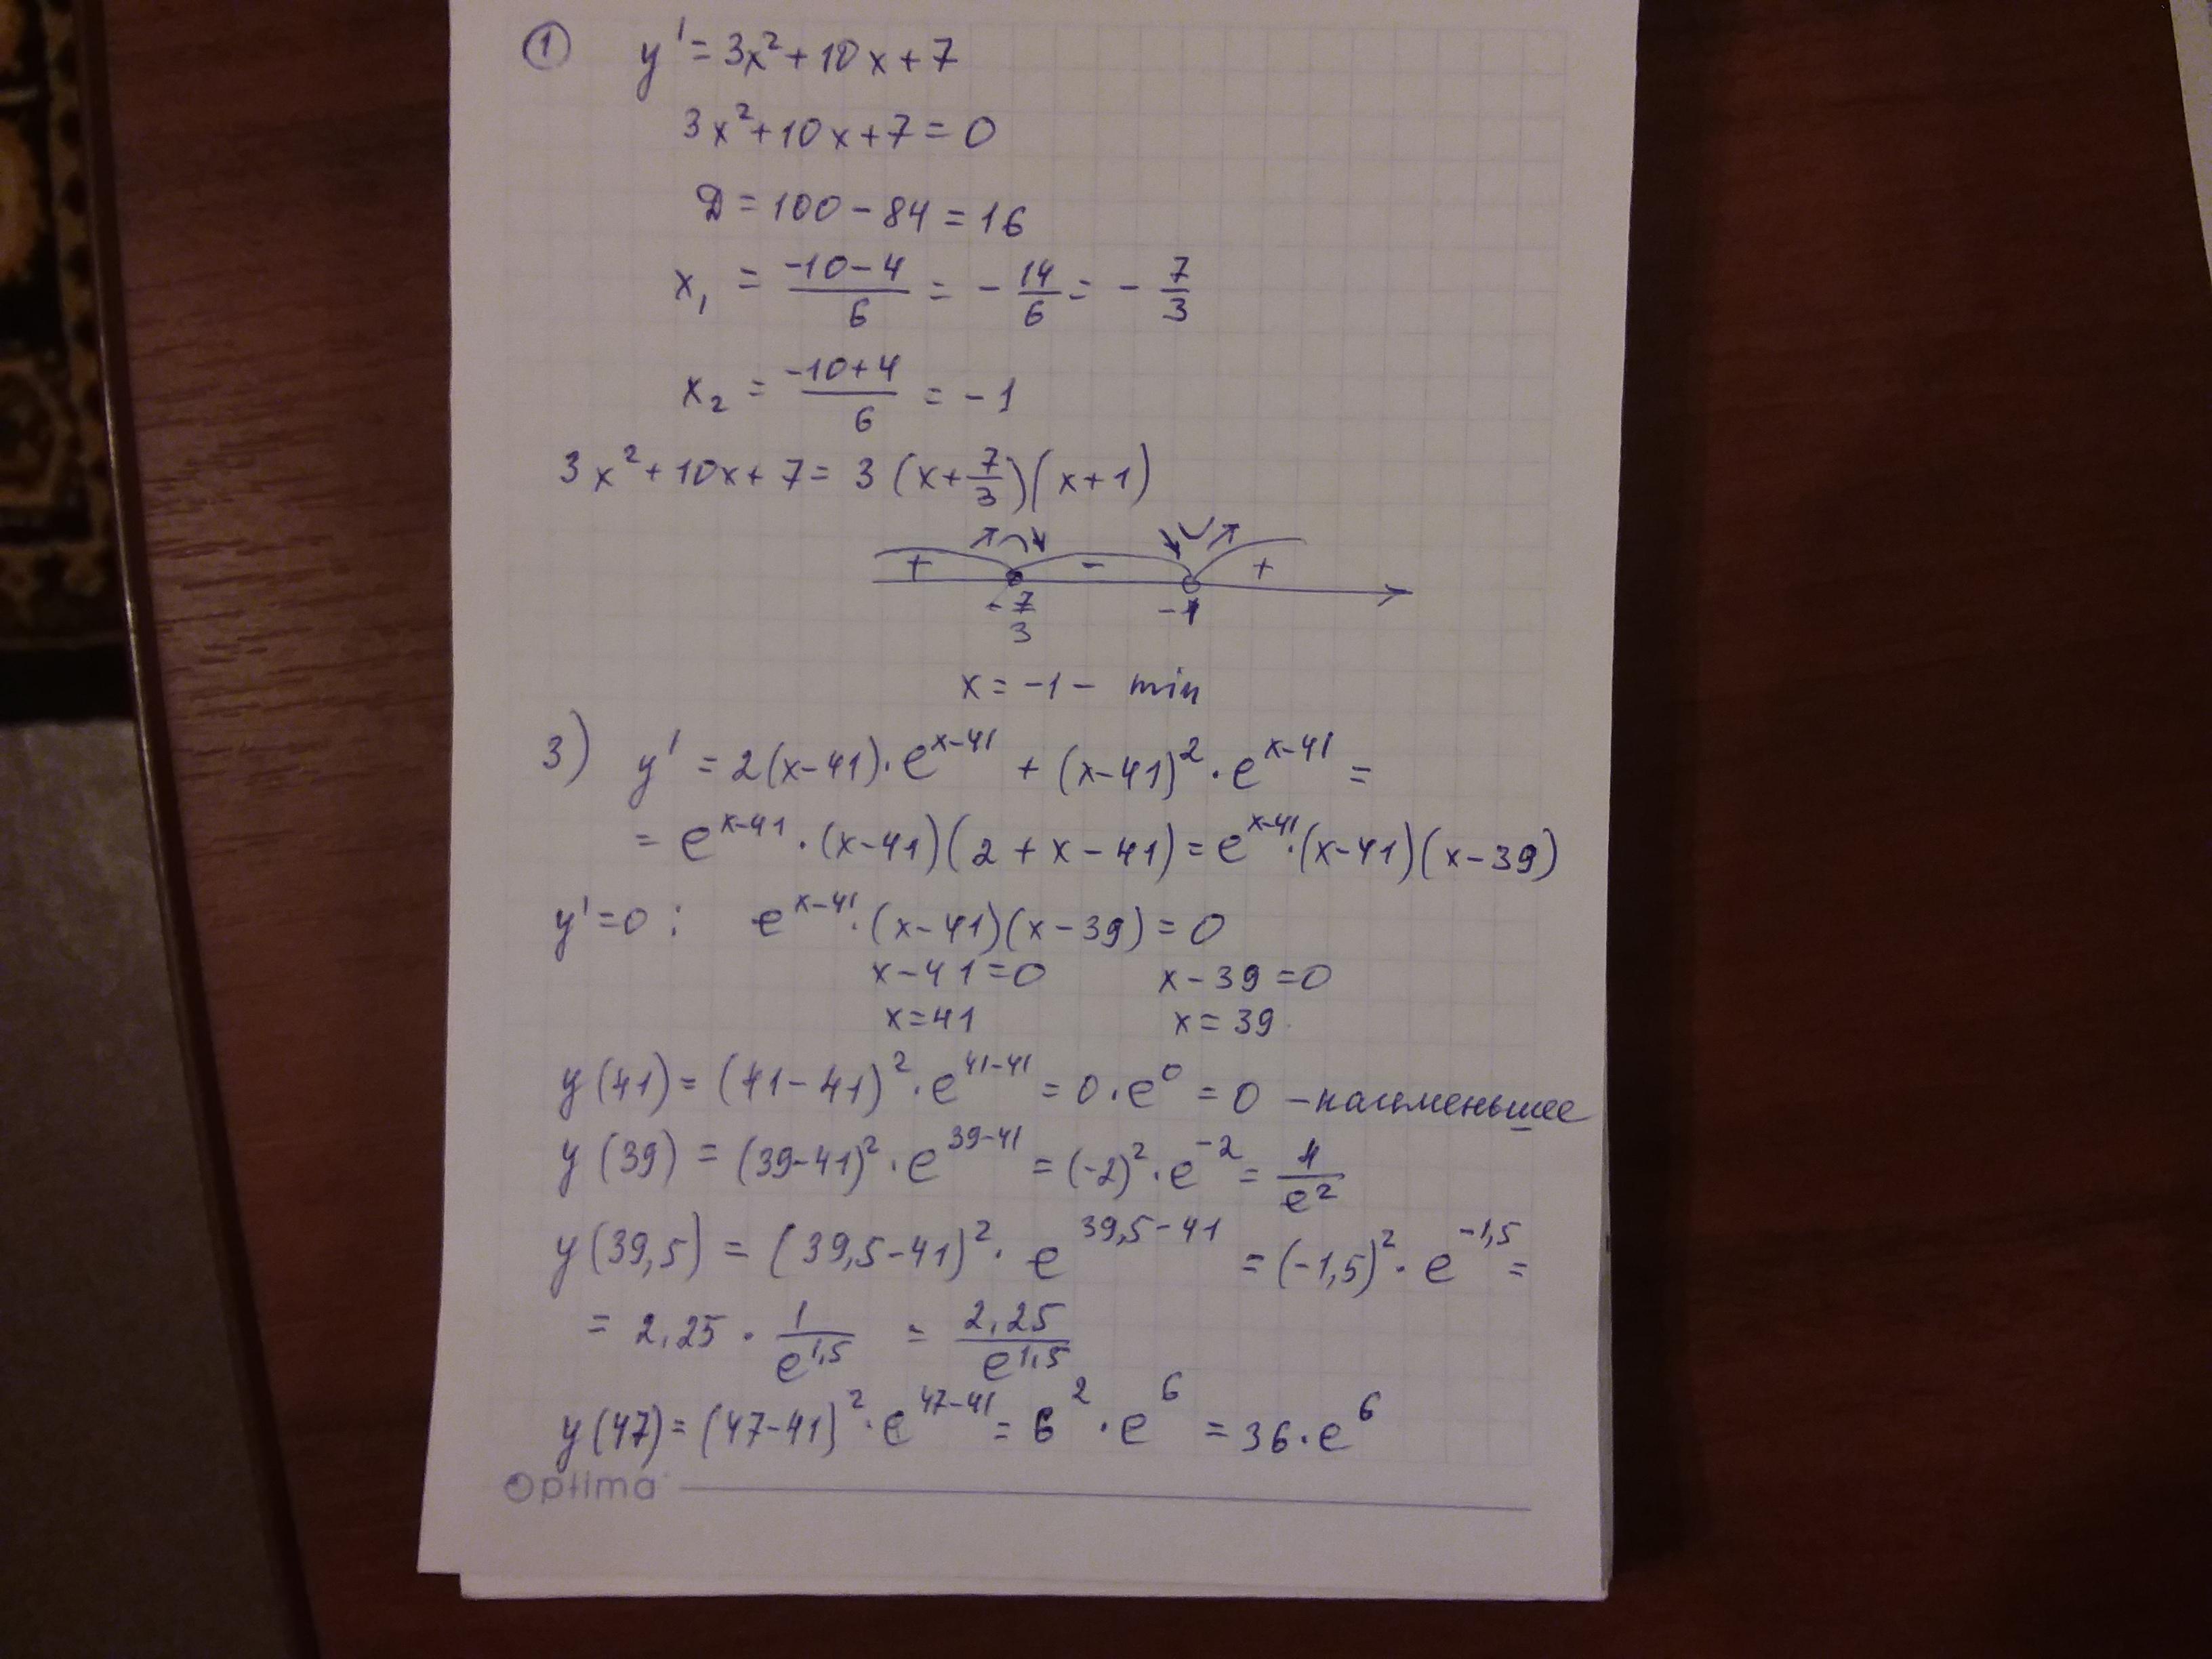 ① y' = 3x² + 10x + 7
3x² + 10x + 7 = 0
D = 100 - 84 = 16
x₁ = (-10-4)/6 = -14/6 = -7/3
x₂ = (-10+4)/6 = -1
3x² + 10x + 7 = 3(x + 7/3)(x + 1)
+ - +
-7/3 -1
x = -1 - min
3) y' = 2(x-41)·e^(x-41) + (x-41)²·e^(x-41) =
= e^(x-41)·(x-41)(2 + x - 41) = e^(x-41)·(x-41)(x-39)
y' = 0 : e^(x-41)·(x-41)(x-39) = 0
x-41=0 x-39=0
x=41 x=39
y(41) = (41-41)²·e^(41-41) = 0·e⁰ = 0 - наименьшее
y(39) = (39-41)²·e^(39-41) = (-2)²·e^(-2) = 4/e²
y(39,5) = (39,5-41)²·e^(39,5-41) = (-1,5)²·e^(-1,5) =
= 2,25 · 1/e^(1,5) = 2,25/e^(1,5)
y(47) = (47-41)²·e^(47-41) = 6²·e⁶ = 36·e⁶
Optima